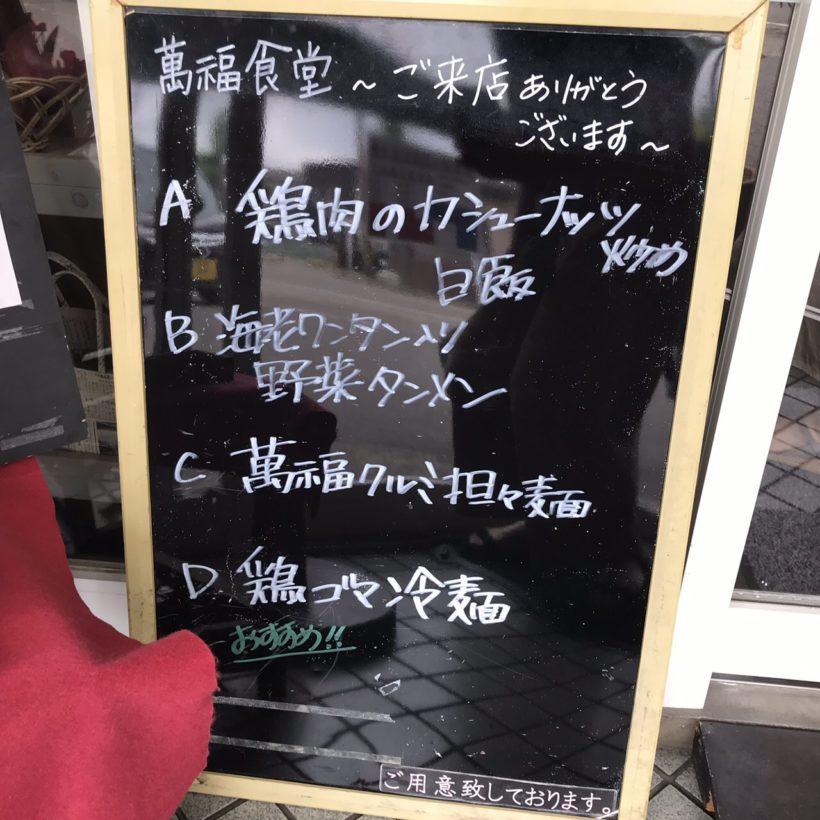 萬福食堂 ~ ご来店ありがとう
ございます~
A 鶏肉のカシューナッツ
炒め
白飯
B 海老ワンタン入り
野菜タンメン
C 萬福クルミ担々麺
D 鶏ゴマ冷麺
おすすめ!!
ご用意致しております。